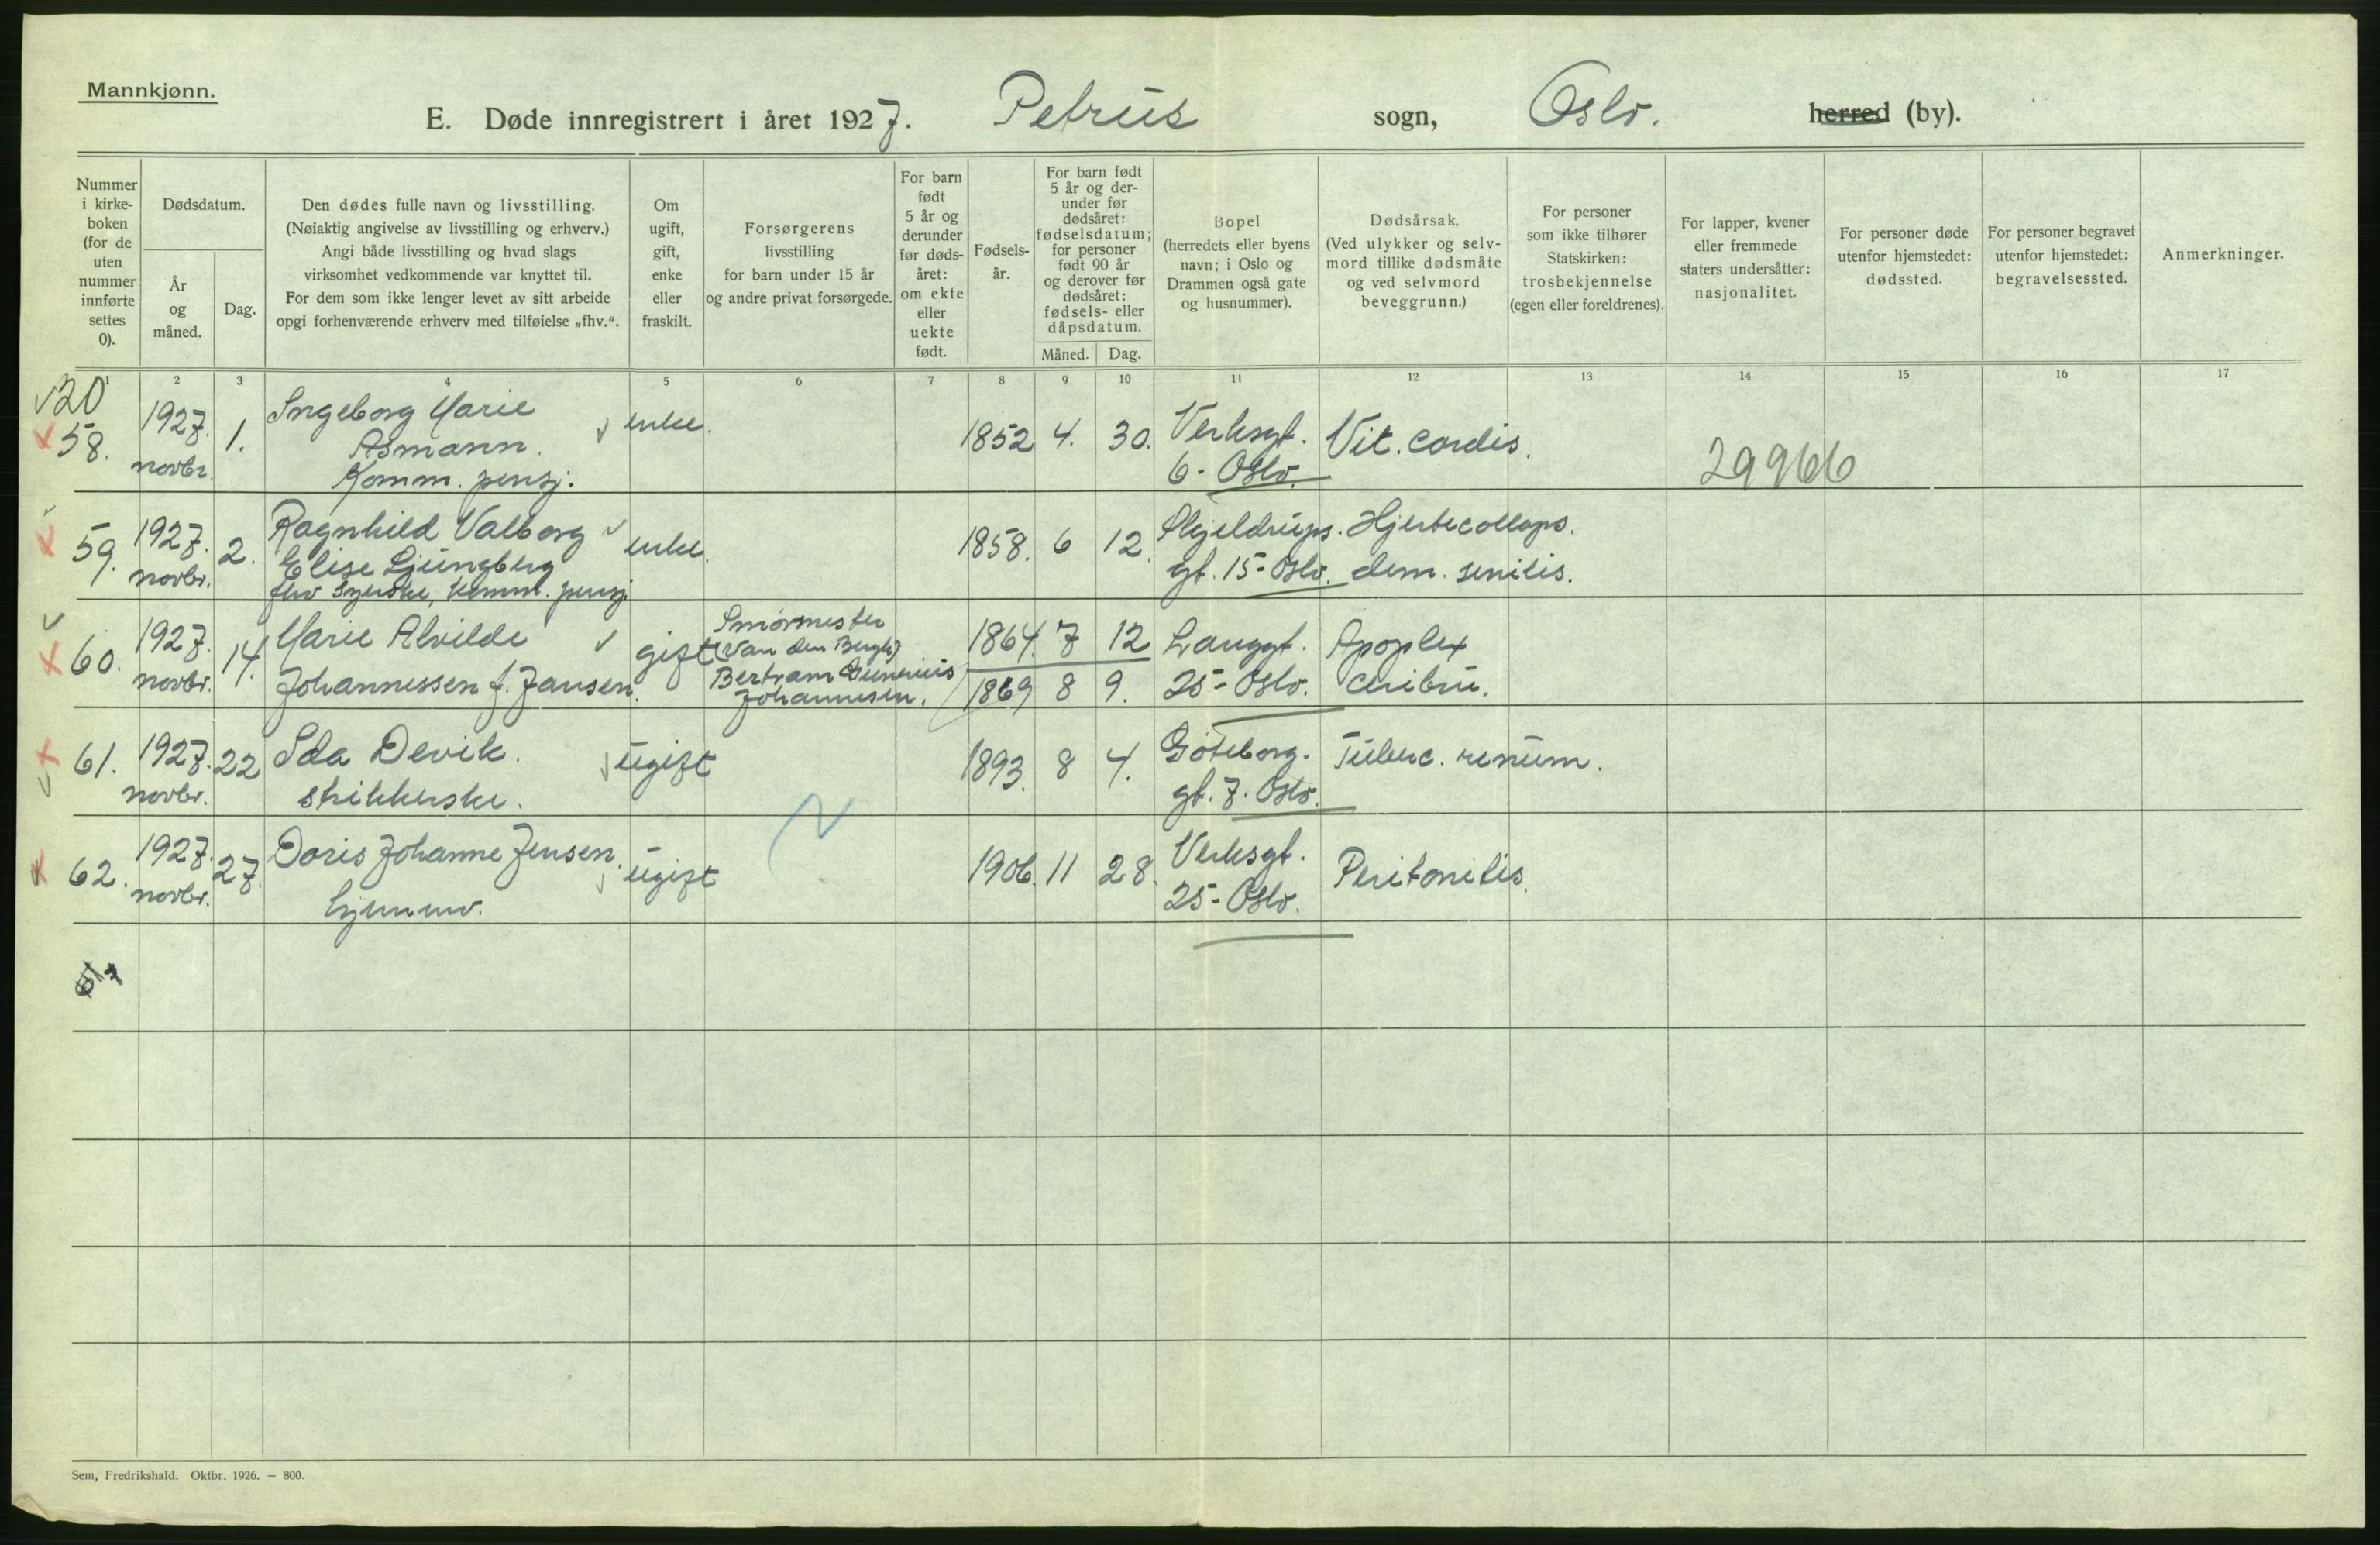 Mannkjønn.
E. Døde innregistrert i året 1927. Petrus sogn, Oslo. herred (by).
Nummer i kirke-boken (for de uten nummer innførte settes 0).
Dødsdatum.
År og måned.
Dag.
Den dødes fulle navn og livsstilling.
(Nøiaktig angivelse av livsstilling og erhverv.)
Angi både livsstilling og hvad slags
virksomhet vedkommende var knyttet til.
For dem som ikke lenger levet av sitt arbeide
opgi forhenværende erhverv med tilføielse „fhv.“.
Om ugift, gift, enke eller fraskilt.
Forsørgerens
livsstilling
for barn under 15 år
og andre privat forsørgede.
For barn født 5 år og derunder før døds-året: om ekte eller uekte født.
Fødsels-år.
For barn født 5 år og der-under før dødsåret: fødselsdatum; for personer født 90 år og derover før dødsåret: fødsels- eller dåpsdatum.
Måned. Dag.
Bopel
(herredets eller byens
navn; i Oslo og
Drammen også gate
og husnummer).
Dødsårsak.
(Ved ulykker og selv-
mord tillike dødsmåte
og ved selvmord
beveggrunn.)
For personer
som ikke tilhører
Statskirken:
trosbekjennelse
(egen eller foreldrenes).
For lapper, kvener
eller fremmede
staters undersåtter:
nasjonalitet.
For personer døde
utenfor hjemstedet:
dødssted.
For personer begravet
utenfor hjemstedet:
begravelsessted.
Anmerkninger.
1 2 3 4 5 6 7 8 9 10 11 12 13 14 15 16 17
20
58. 1927. novbr. 1. Ingeborg Marie
Asmann.
Komm. pensj.
enke. 1852 4. 30. Verksgt.
6 - Oslo.
Vit. cordis.
29966
59. 1927. novbr. 2. Ragnhild Valborg
Elise Ljungberg
fhv syerske, komm. pensj.
enke. 1858. 6 12. Skjeldrups.
gt. 15 - Oslo.
Hjertecollaps.
dem. senilis.
60. 1927. novbr. 14. Marie Alvilde
Johannessen f. Jansen.
gift
Smørmester
(Van den Bergh)
Bertram
Johannesen.
1864. 7 12
1869 8 9.
Langgt.
25 - Oslo.
Apoplex
ceribru.
61. 1927. novbr. 22 Ida Devik.
strikkerske.
ugift 1893. 8 4. Göteborg.
gt. 7. Oslo.
Tuberc. renum.
62. 1927. novbr. 27. Doris Johanne Jensen.
hjemmev.
ugift 1906. 11 28. Verksgt.
25 - Oslo.
Peritonitis.
Sem, Fredrikshald. Oktbr. 1926. — 800.